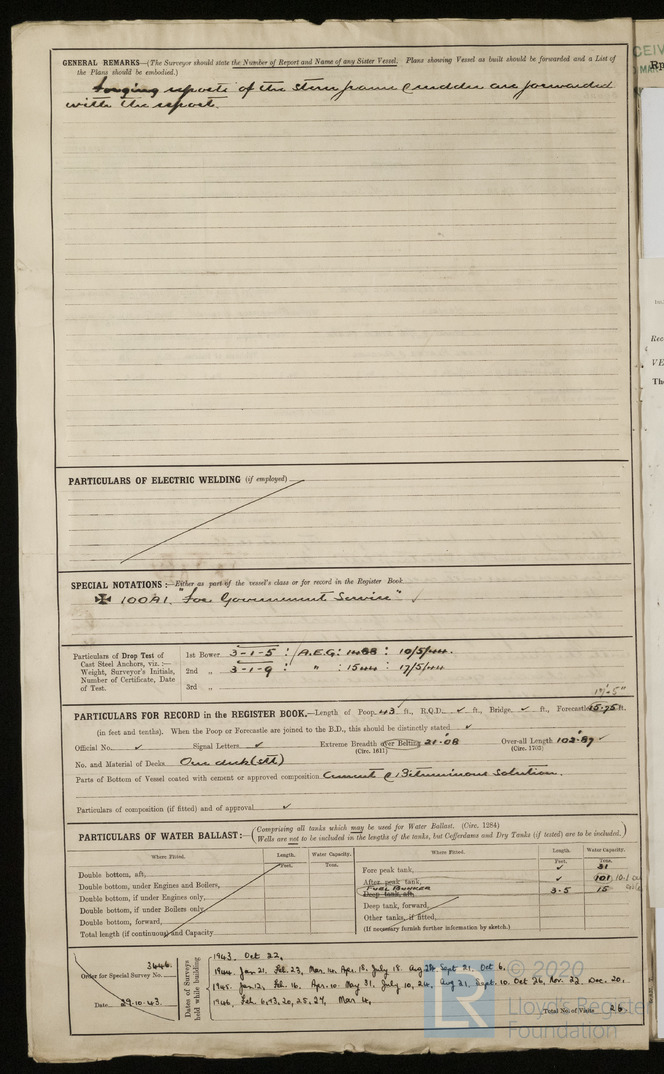 GENERAL REMARKS—(The Surveyor should state the Number of Report and Name of any Sister Vessel. Plans showing Vessel as built should be forwarded and a List of
the Plans should be embodied.)
forging reports of the stern frame & rudder are forwarded
with the report.
PARTICULARS OF ELECTRIC WELDING (if employed)
SPECIAL NOTATIONS:—Either as part of the vessel's class or for record in the Register Book
✠ 100A1. "For Government Service" ✓
Particulars of Drop Test of
Cast Steel Anchors, viz.:—
Weight, Surveyor's Initials,
Number of Certificate, Date
of Test.
1st Bower 3-1-5 : A.E.G: : 10/5/
2nd „ 3-1-9 : „ : : 17/5/
3rd „
PARTICULARS FOR RECORD in the REGISTER BOOK.—Length of Poop 43 ft., R.Q.D. ✓ ft., Bridge ✓ ft., Forecastle 15.75 ft.
(in feet and tenths). When the Poop or Forecastle are joined to the B.D., this should be distinctly stated ✓
Official No. ✓ Signal Letters ✓ Extreme Breadth over Belting 21.08 Over-all Length 102.89 ✓
(Circ. 1611) (Circ. 1703)
No. and Material of Decks One deck (stl)
Parts of Bottom of Vessel coated with cement or approved composition Cement & Bituminous Solution.
Particulars of composition (if fitted) and of approval ✓
PARTICULARS OF WATER BALLAST:—(Comprising all tanks which may be used for Water Ballast. (Circ. 1284)
Wells are not to be included in the lengths of the tanks, but Cofferdams and Dry Tanks (if tested) are to be included.)
Where Fitted. Length. Water Capacity.
Feet. Tons.
Double bottom, aft,
Double bottom, under Engines and Boilers,
Double bottom, if under Engines only,
Double bottom, if under Boilers only,
Double bottom, forward,
Total length (if continuous) and Capacity
Where Fitted. Length. Water Capacity.
Feet. Tons.
Fore peak tank, ✓ 31
After peak tank, ✓ 101
FUEL BUNKER
Deep tank, aft, 3.5 15
Deep tank, forward,
Other tanks, if fitted,
(If necessary furnish further information by sketch.)
Order for Special Survey No. 3646
Date 29.10.43.
Dates of Surveys
held while building
1943. Oct 22.
1944. Jan. 21. Feb. 23, Mar. 14. Apr. 18. July 18. Aug 24. Sept 21. Oct 6.
1945. Jan. 12, Feb. 16. Apr. 10. May 31. July 10, 24. Aug 21. Sept. 10. Oct 26. Nov. 22. Dec. 20.
1946. Feb. 6, 13, 20, 25, 27, Mar 4,
Total No. of Visits 26
© 2020
LR
Lloyd's Register
Foundation